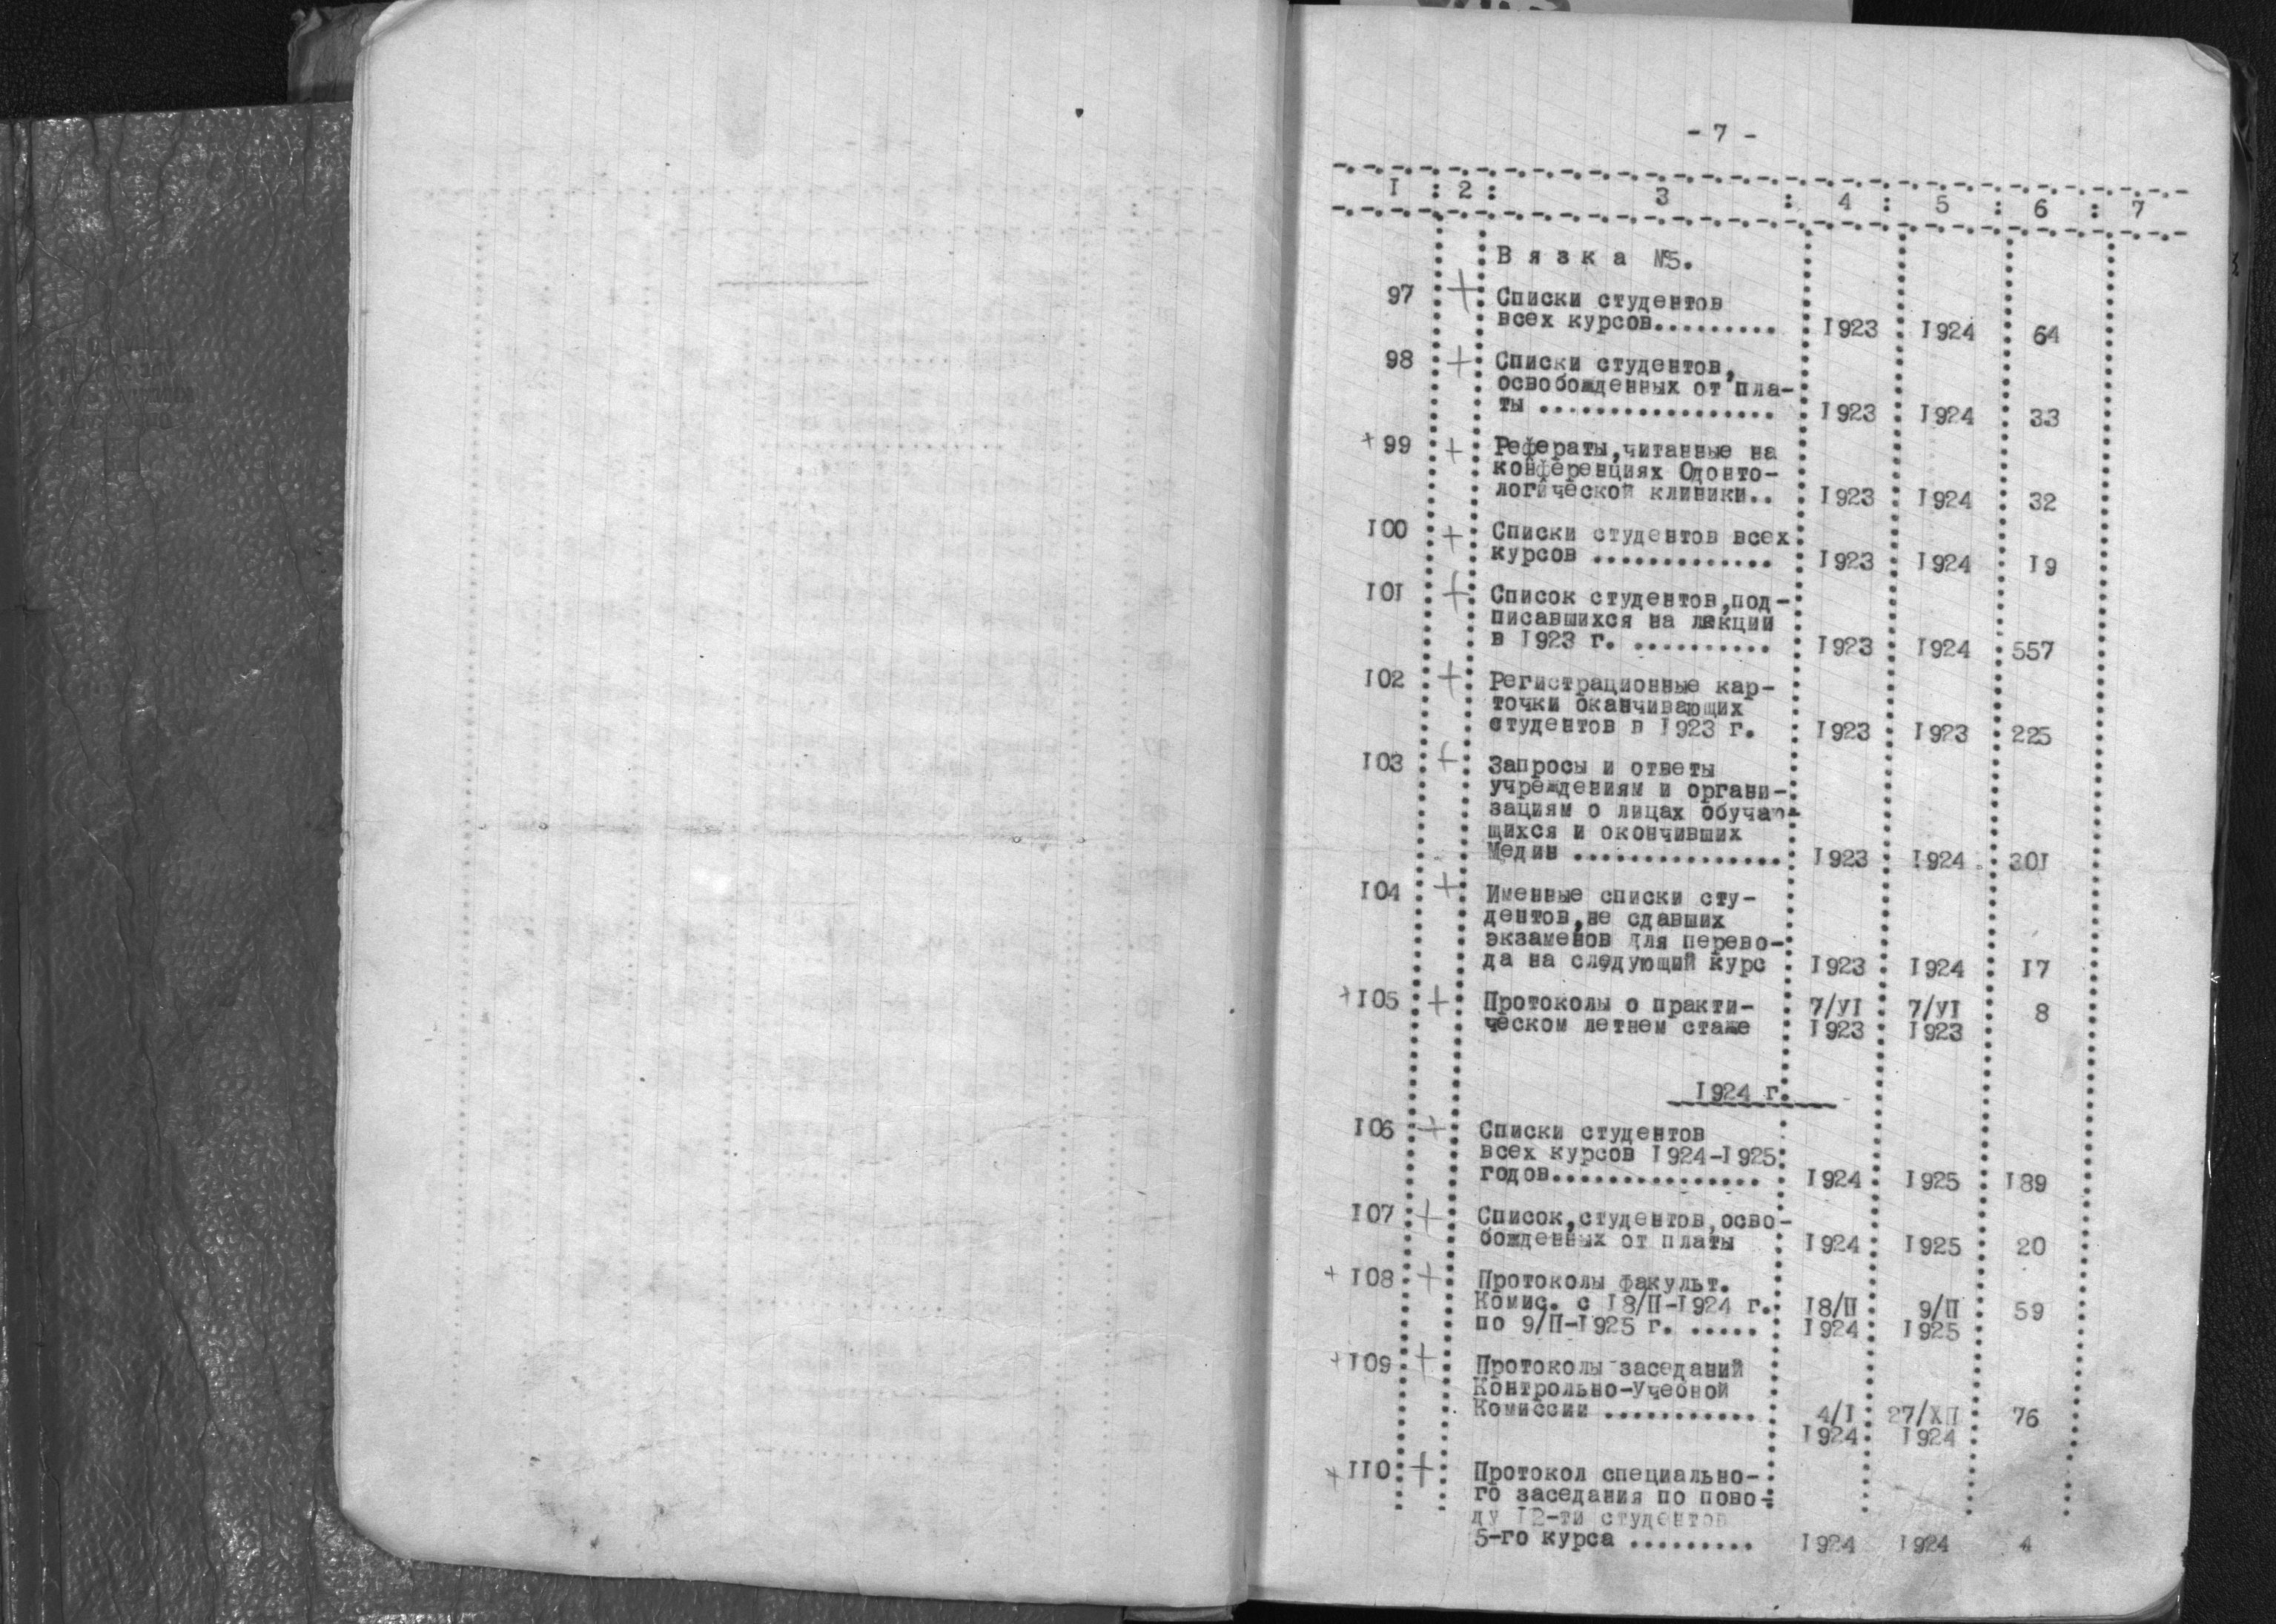 - 7 -
I : 2 : 3 : 4 : 5 : 6 : 7
В я з к а №5.
97 + Списки студентов
всех курсов......... I923 I924 64
98 + Списки студентов,
освобожденных от пла-
ты ................. I923 I924 33
+ 99 + Рефераты,читанные на
конференциях Одонто-
логической клиники.. I923 I924 32
I00 + Списки студентов всех
курсов ............. I923 I924 I9
I0I + Список студентов,под-
писавшихся на лекции
в I923 г. .......... I923 I924 557
I02 + Регистрационные кар-
точки оканчивающих
студентов в I923 г. I923 I923 225
I03 + Запросы и ответы
учреждениям и органи-
зациям о лицах обучаю-
щихся и окончивших
Медин ............... I923 I924 30I
I04 + Именные списки сту-
дентов,не сдавших
экзаменов для перево-
да на следующий курс I923 I924 I7
+ I05 + Протоколы о практи- 7/УI 7/УI 8
ческом летнем стаже I923 I923
I924 г.
I06 + Списки студентов
всех курсов I924-I925
годов............... I924 I925 I89
I07 + Список,студентов,осво-
божденных от платы I924 I925 20
+ I08 + Протоколы факульт.
Комис. с I8/П-I924 г. I8/П 9/П 59
по 9/П-I925 г. ..... I924 I925
+ I09 + Протоколы заседаний
Контрольно-Учебной
Комиссии ........... 4/I 27/ХП 76
I924 I924
+ II0 + Протокол специально-
го заседания по пово-
ду I2-ти студентов
5-го курса ......... I924 I924 4